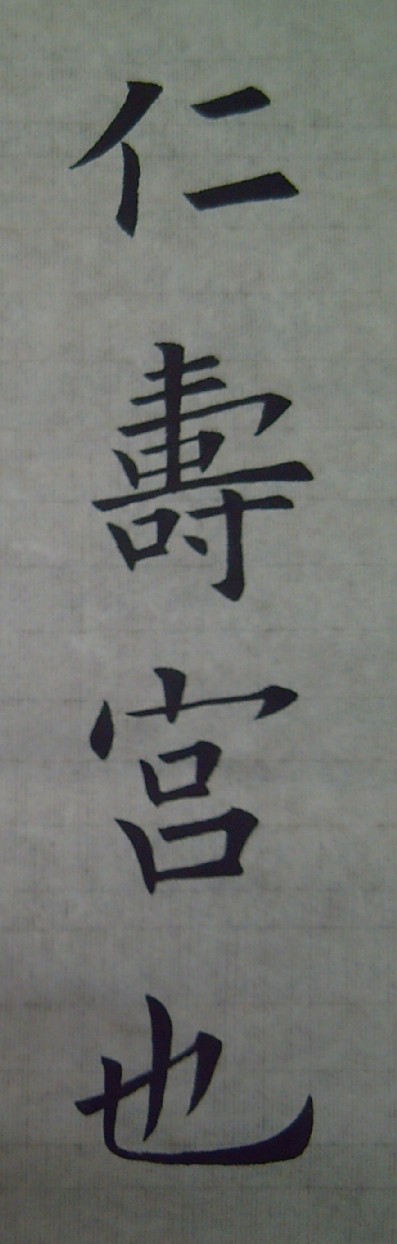 仁壽宮也